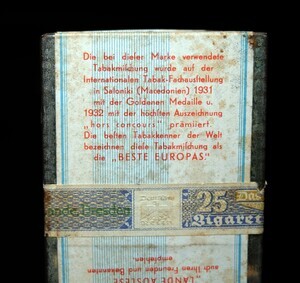 Die bei dieser Marke verwendete
Tabakmischung wurde auf der
Internationalen Tabak-Fachausstellung
in Saloniki (Macedonien) 1931
mit der Goldenen Medaille u.
1932 mit der höchsten Auszeichnung
„hors concours" prämiiert.
Die besten Tabakkenner der Welt
bezeichnen diese Tabakmischung als
die „BESTE EUROPAS."
25
Zigaret
empfehlen
auch Ihren Freunden und Bekannten
"LANDE AUSLESE